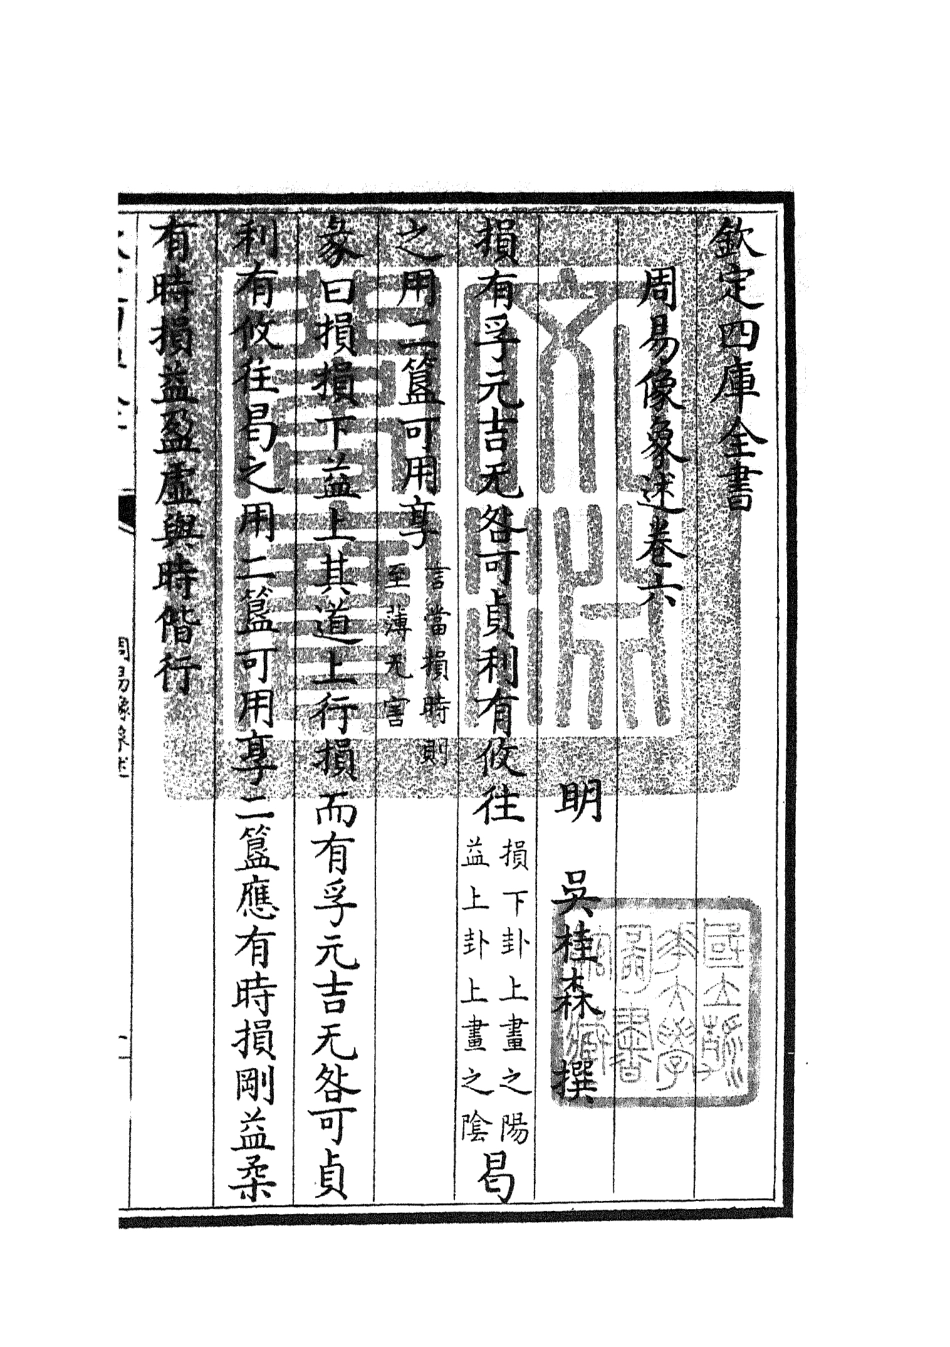 欽定四庫全書
周易像象述卷六
明 吳桂森 撰
損有孚元吉无咎可貞利有攸往損下卦上畫之陽益上卦上畫之陰曷
之用二簋可用享言當損時則至薄无害
彖曰損損下益上其道上行損而有孚元吉无咎可貞
利有攸往曷之用二簋可用享二簋應有時損剛益柔
有時損益盈虛與時偕行